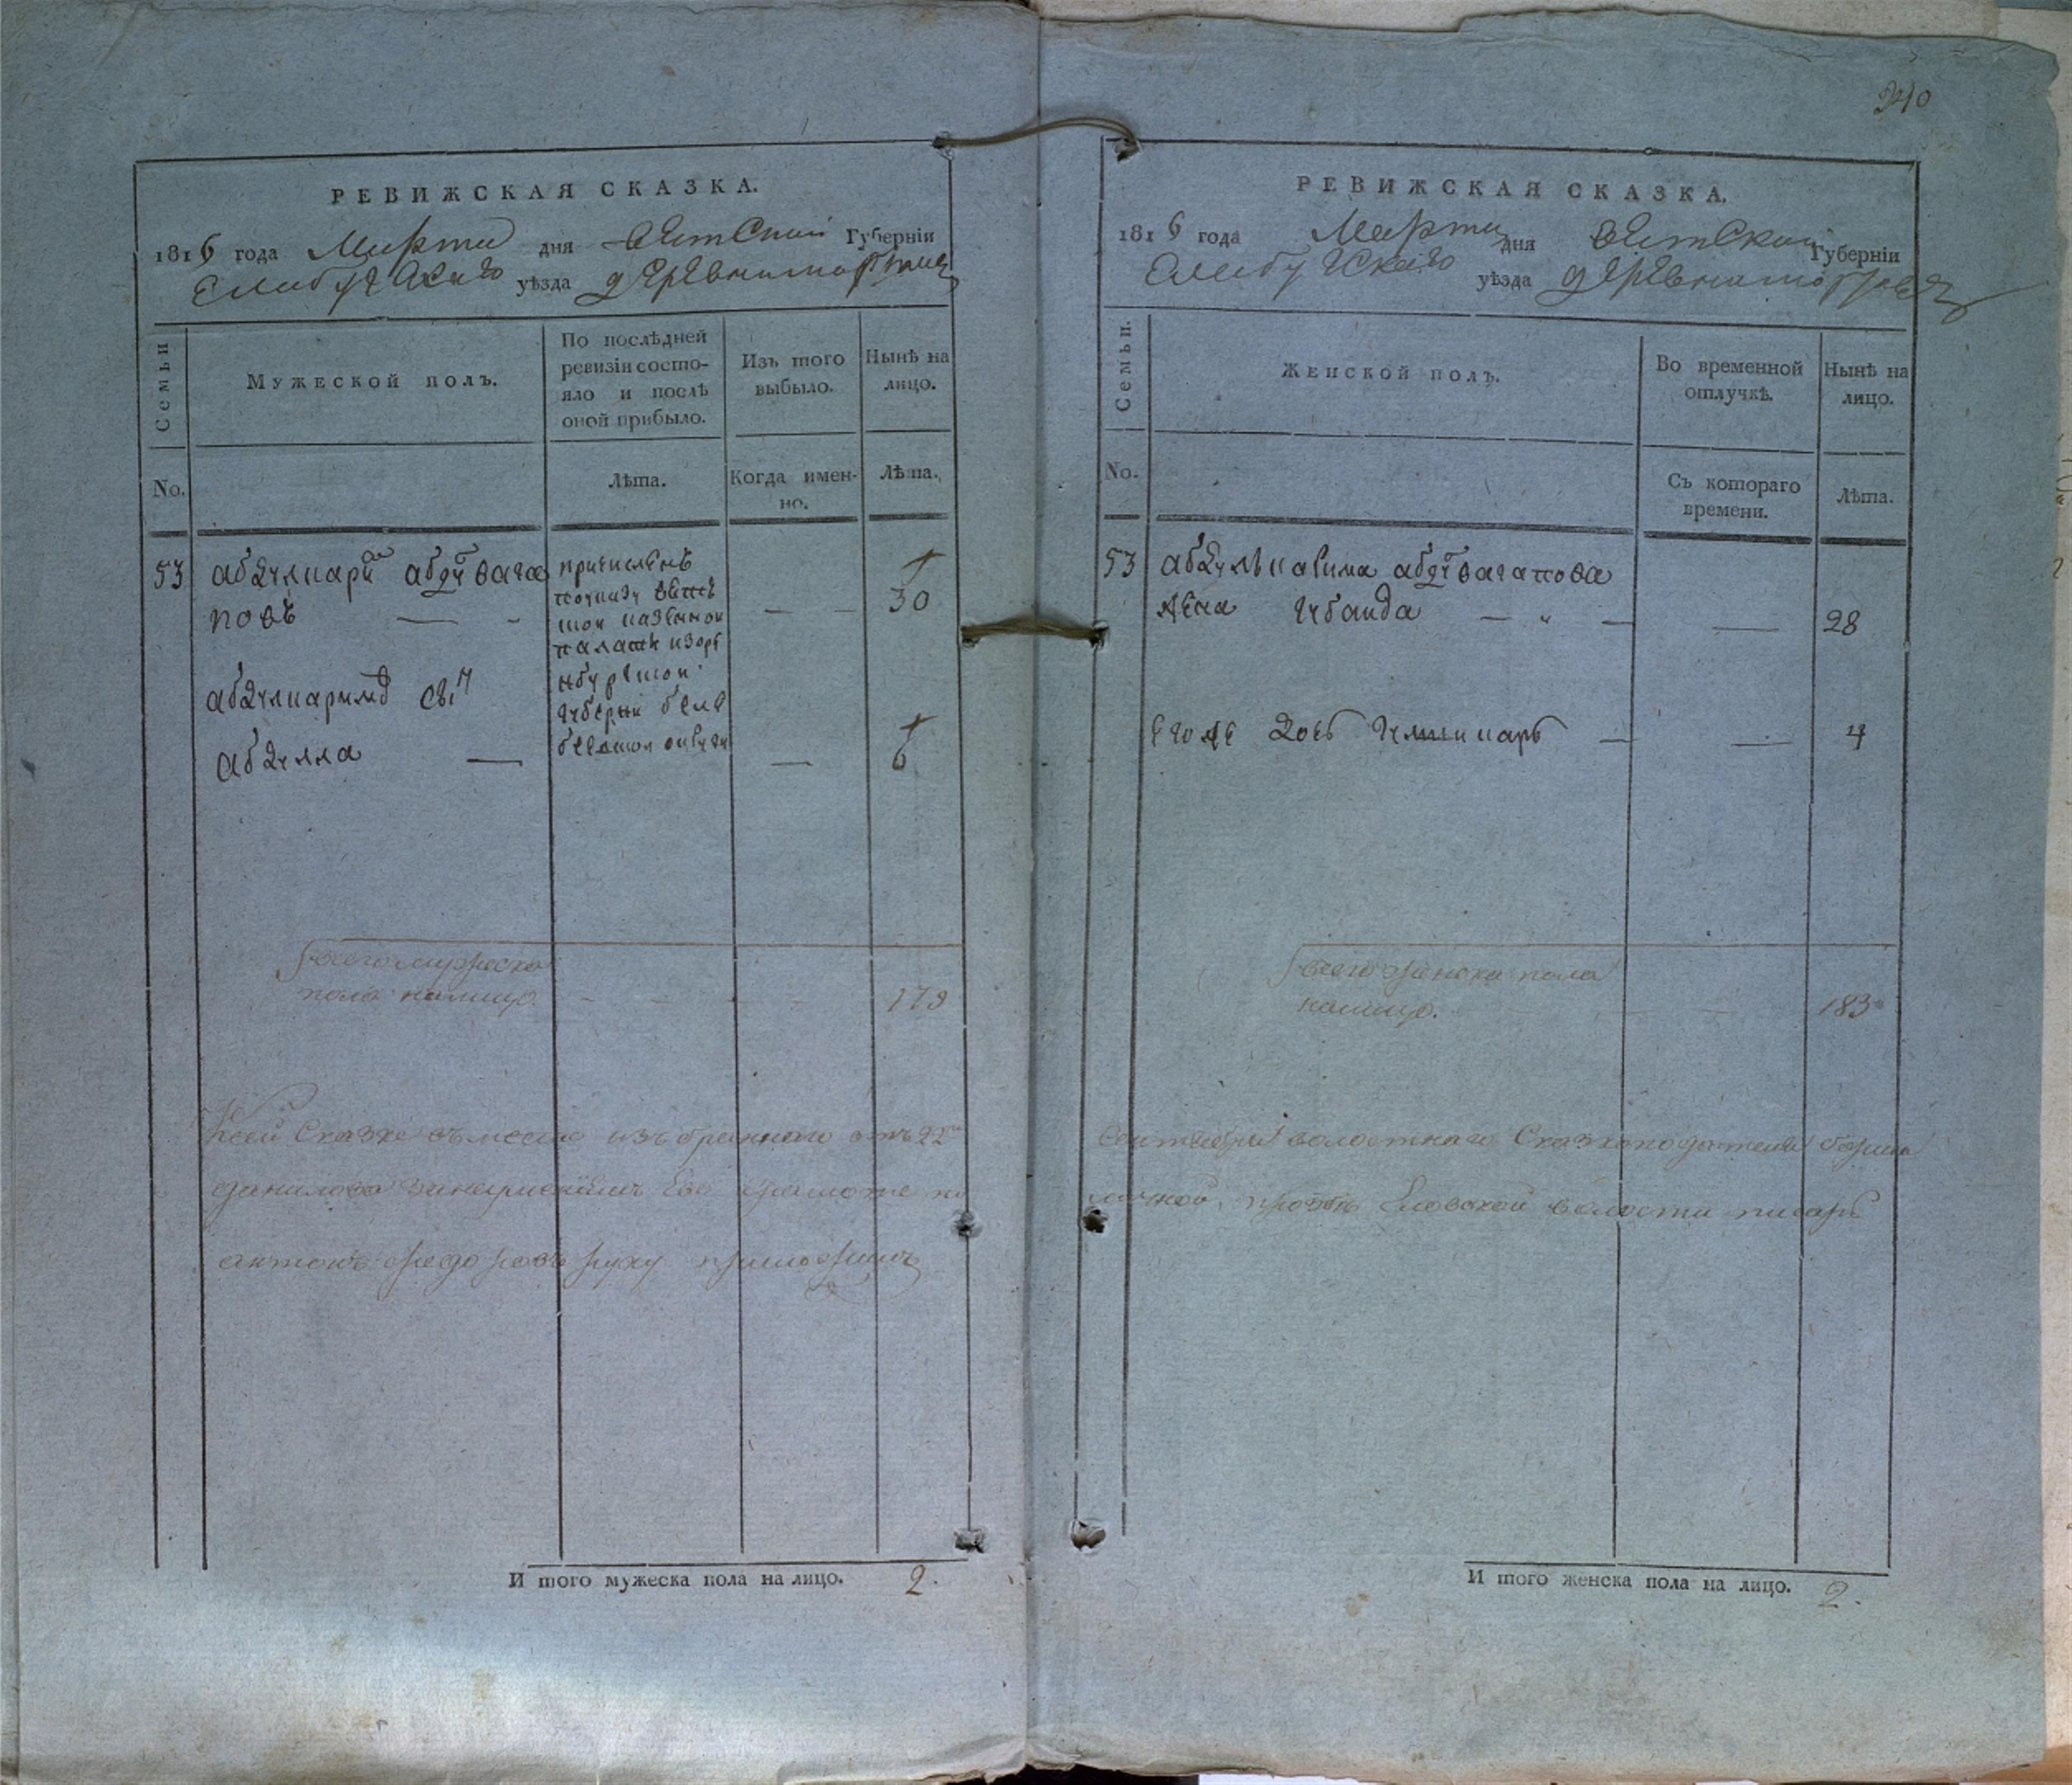 РЕВИЖСКАЯ СКАЗКА.
1816 года Марта дня вятской Губерніи
Елабужскаго уѣзда деревни
Семьи
Мужеской полъ.
По послѣдней ревизіи состо-
яло и послѣ
оной прибыло.
Изъ того
выбыло.
Нынѣ на
лицо.
No.
Лѣта.
Когда имен-
но.
Лѣта.
53 абдулкари абду вага
повъ — - — — 30
причисленъ
поуказу вятс
кой казенной
палаты изоре
нбургской
губерни беле
беевской округи
абдулкаримовъ сынъ
абдулла — — 6
всего мужеска
пола налицо. - - - - 179
Ксей Сказке вместо избраннаго отъ 22
данилова занеумениемъ Ево грамоте по
антонъ федоровъ руку приложилъ
И того мужеска пола на лицо. 2.
340
РЕВИЖСКАЯ СКАЗКА.
1816 года Марта дня вятской Губерніи
Елабужскаго уѣзда деревни
Семьи.
Женской полъ.
Во временной
отлучкѣ.
Нынѣ на
лицо.
No.
Съ котораго
времени.
Лѣта.
53 абдулькарима абдувагапова
жена Губаида — " — — 28
Его же дочь — — 4
всего женска пола
налицо. - - - 183
сентября волостнаго Сказкоподателя
прозбе Еловской волости писарь
И того женска пола на лицо. 2.